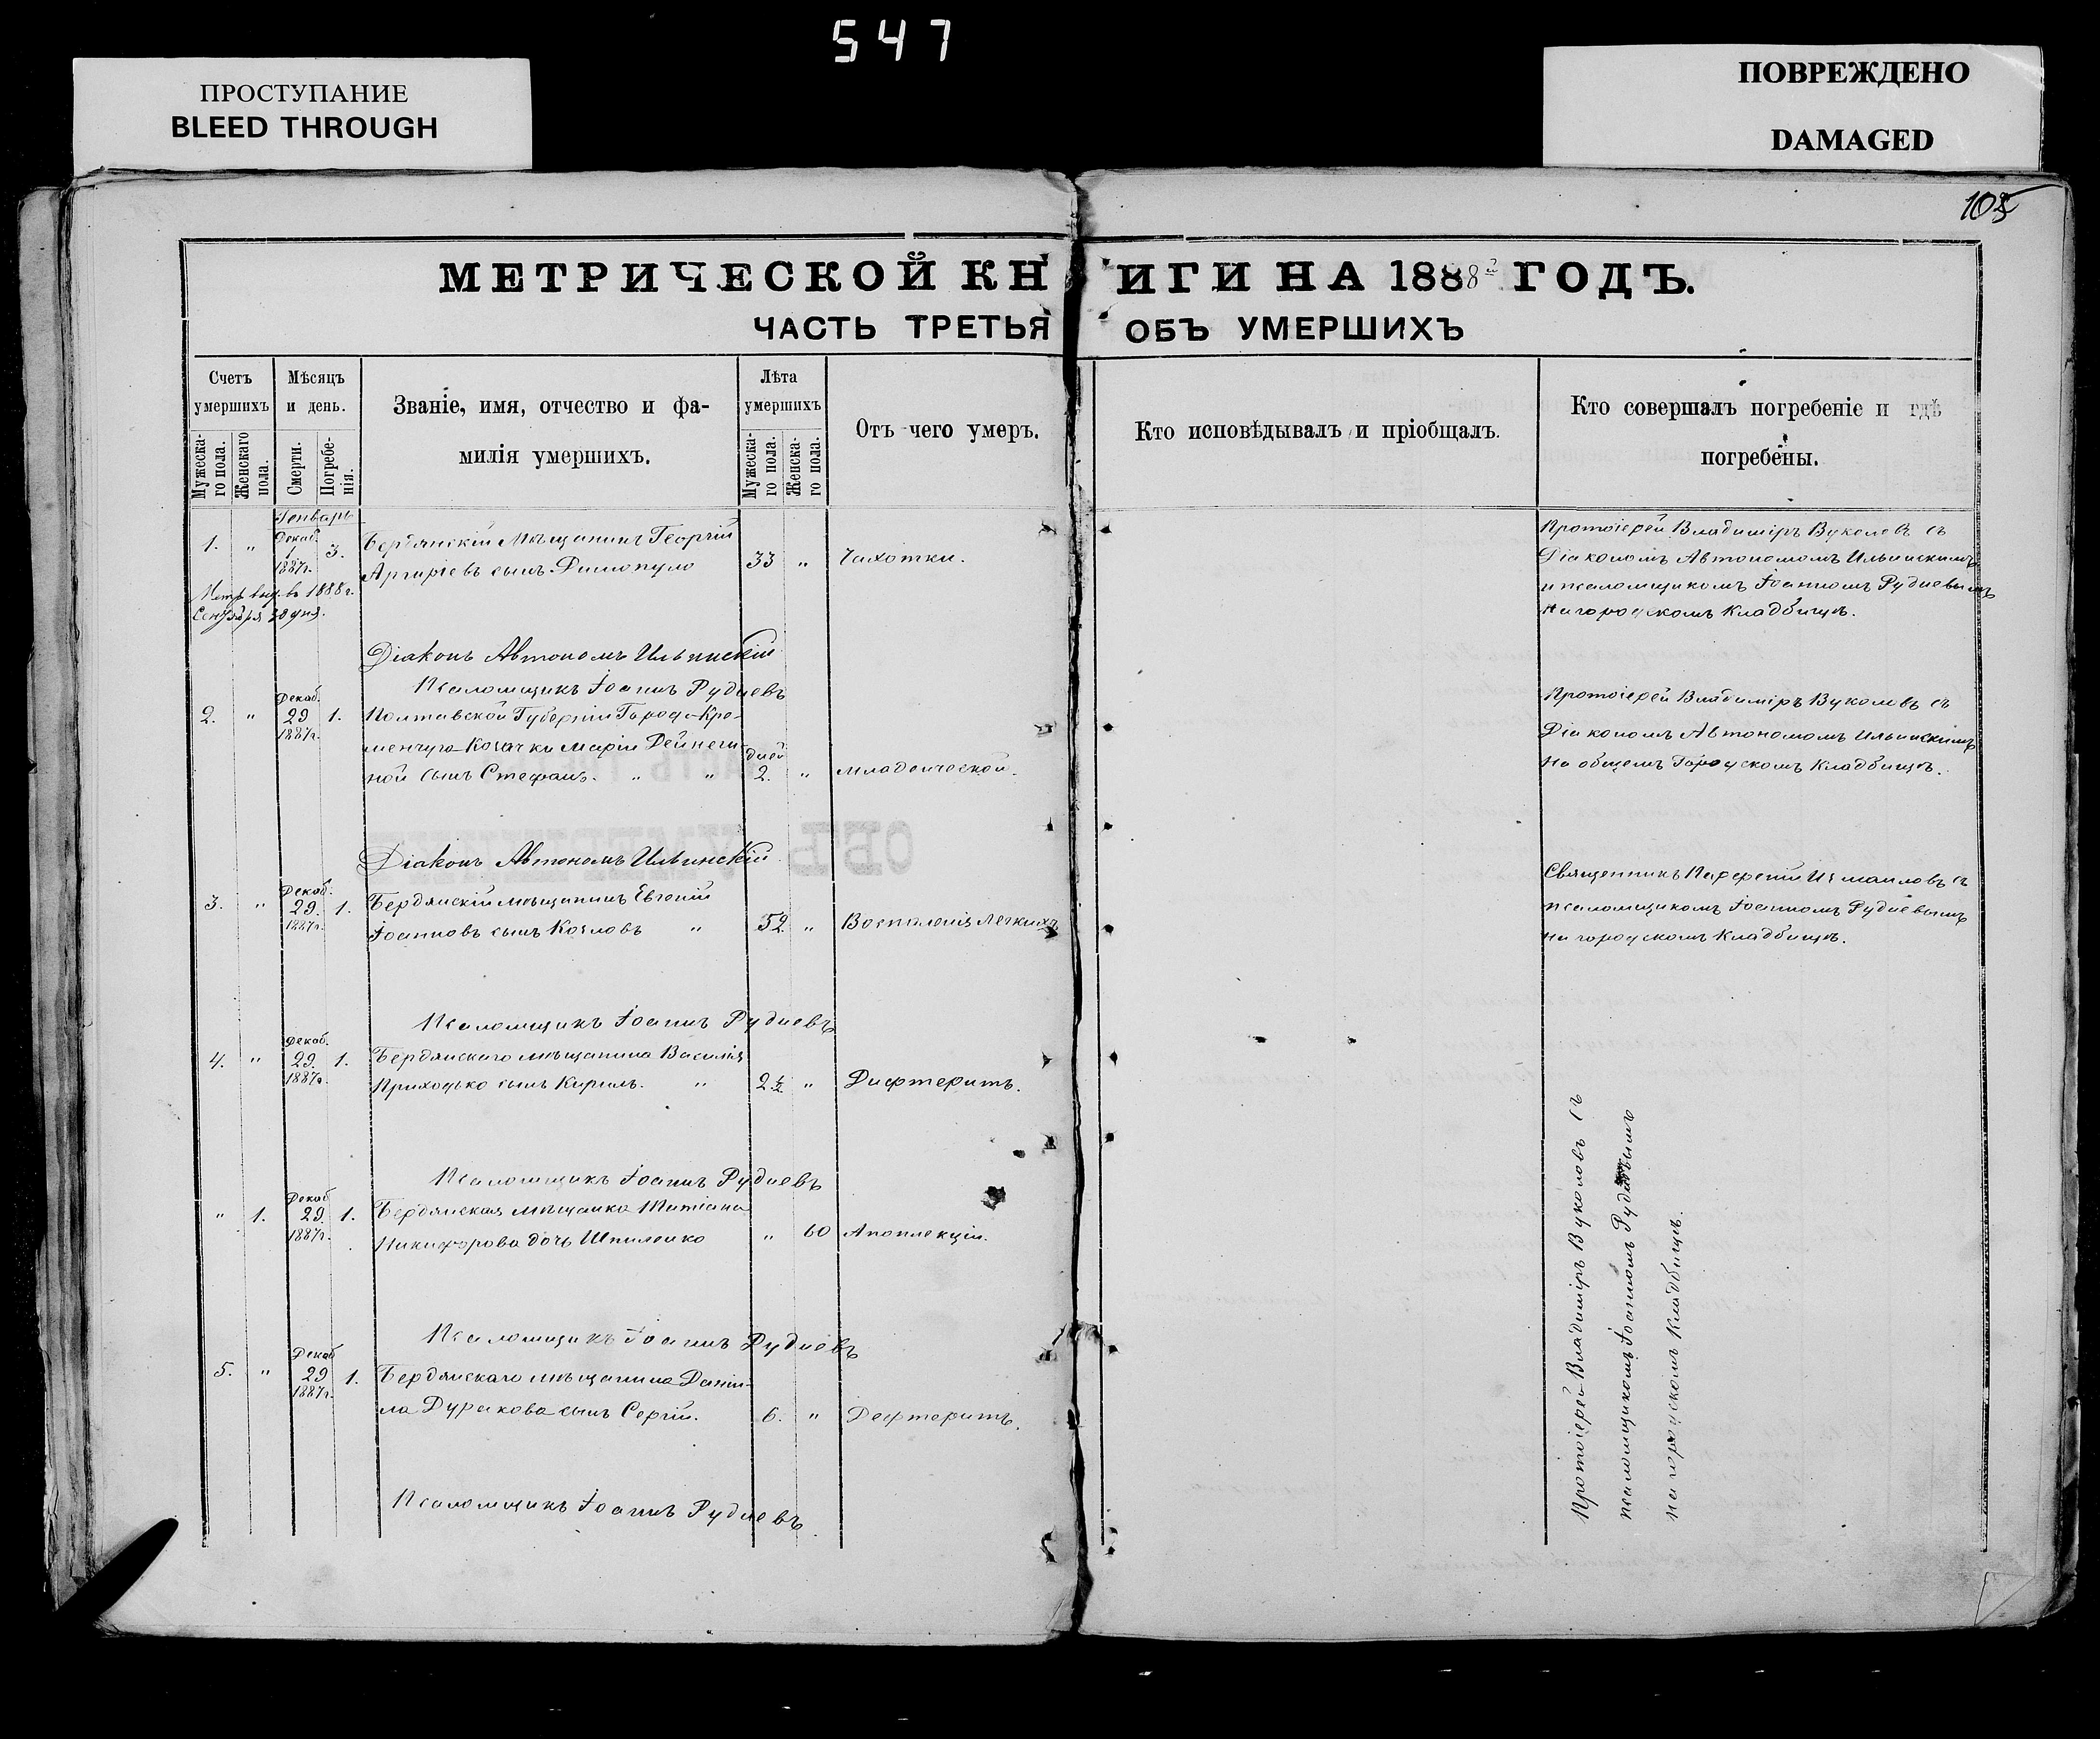 547
ПРОСТУПАНИЕ
BLEED THROUGH
ПОВРЕЖДЕНО
DAMAGED
105
МЕТРИЧЕСКОЙ КНИГИ НА 1888й ГОДЪ.
ЧАСТЬ ТРЕТЬЯ ОБЪ УМЕРШИХЪ
Счетъ умершихъ
Мужеска-го пола.
Женскаго пола.
Мѣсяцъ и день.
Смерти.
Погребе-нія.
Званіе, имя, отчество и фа-
милія умершихъ.
Лѣта умершихъ
Мужеска-го пола.
Женска-го пола.
Отъ чего умеръ.
Кто исповѣдывалъ и пріобщалъ.
Кто совершалъ погребеніе и гдѣ
погребены.
Генварь
1. " Декаб. 1. 1887г. 3.
Бердянскій Мѣщанинъ Георгій
Аргиріевъ сынъ Димопуло 33 " Чахотки.
Метр. выд. въ 1888 г.
Сентября 30 дня.
Протоіерей Владиміръ Вуколовъ съ
Діакономъ Автономомъ Ильинскимъ
и псаломщикомъ Іоанномъ Рудневымъ
на городскомъ Кладбищѣ.
Діаконъ Автономъ Ильинскій
Псаломщикъ Іоаннъ Рудневъ
2. " Декаб. 29 1887г. 1.
Полтавской Губерніи Города Кре-
менчуга Козачки Маріи Дейнеги-
ной сынъ Стефанъ. " " дней 2. " Младенческой.
Протоіерей Владиміръ Вуколовъ съ
Діакономъ Автономомъ Ильинскимъ
на общемъ Городскомъ Кладбищѣ.
Діаконъ Автономъ Ильинскій
3. " Декаб. 29. 1887г. 1.
Бердянскій мѣщанинъ Евгеній
Іоанновъ сынъ Козловъ " 52 " Воспаленія Легкихъ
Священникъ Парфеній Измаиловъ съ
псаломщикомъ Іоанномъ Рудневымъ
на городскомъ Кладбищѣ.
Псаломщикъ Іоаннъ Рудневъ
4. " Декаб. 29. 1887г. 1.
Бердянскаго мѣщанина Василія
Приходько сынъ Кирилъ. " 2½ " Дифтеритъ.
Псаломщикъ Іоаннъ Рудневъ
" 1. Декаб 29. 1887г. 1.
Бердянская мѣщанка Татіана
Никифорова дочь Шпиленко " 60 Апоплекціи.
Псаломщикъ Іоаннъ Рудневъ
5. " Декаб 29 1887г. 1.
Бердянскаго мѣщанина Дании-
ла Дуракова сынъ Сергій. 6. " Дефтеритъ.
Псаломщикъ Іоаннъ Рудневъ.
Протоіерей Владиміръ Вуколовъ съ
псаломщикомъ Іоанномъ Рудневымъ
на городскомъ Кладбищѣ.